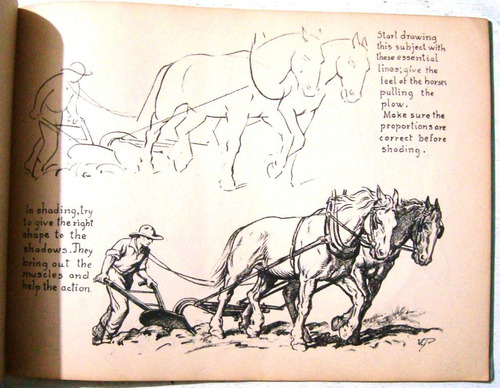 Start drawing
this subject with
these essential
lines; give the
feel of the horses
pulling the
plow.
Make sure the
proportions are
correct before
shading.
In shading, try
to give the right
shape to the
shadows. They
bring out the
muscles and
help the action